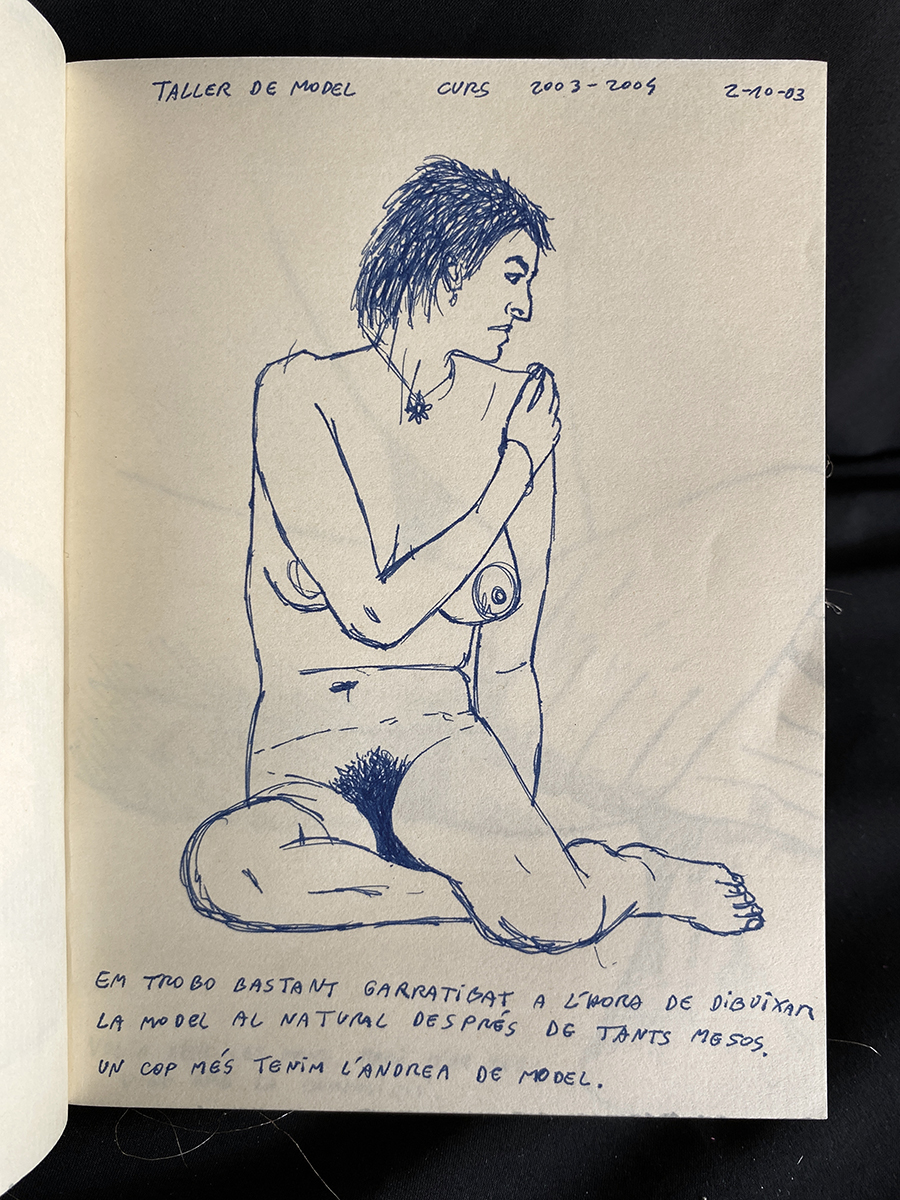 TALLER DE MODEL CURS 2003-2004 2-10-03
EM TROBO BASTANT GARRATIBAT A L'HORA DE DIBUIXAR
LA MODEL AL NATURAL DESPRÉS DE TANTS MESOS.
UN COP MÉS TENIM L'ANDREA DE MODEL.